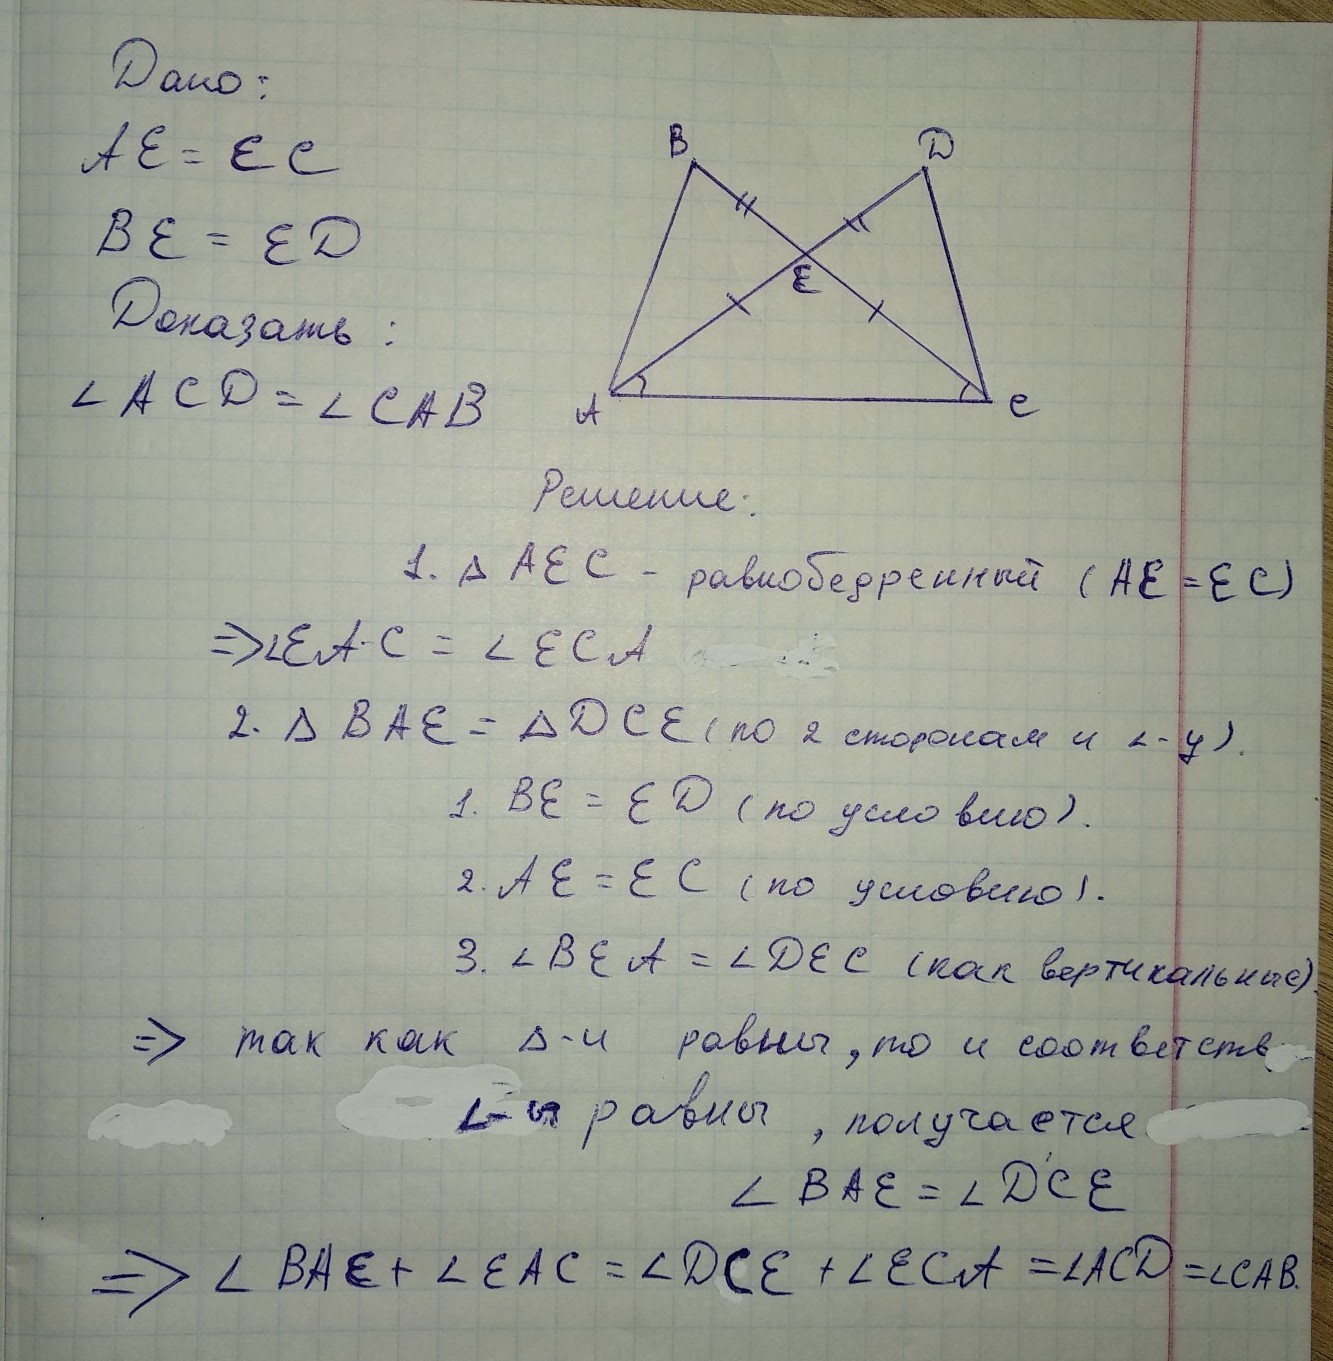 Дано:
AE = EC
BE = ED
Доказать:
∠ACD = ∠CAB
B
D
E
A
C
Решение:
1. Δ AEC - равнобедренный (AE = EC)
=> ∠EAC = ∠ECA
2. Δ BAE = Δ DCE (по 2 сторонам и ∠-у).
1. BE = ED (по условию).
2. AE = EC (по условию).
3. ∠BEA = ∠DEC (как вертикальные).
=> так как Δ-и равны, то и соответств
∠-ы равны, получается
∠BAE = ∠DCE
=> ∠BAE + ∠EAC = ∠DCE + ∠ECA = ∠ACD = ∠CAB.